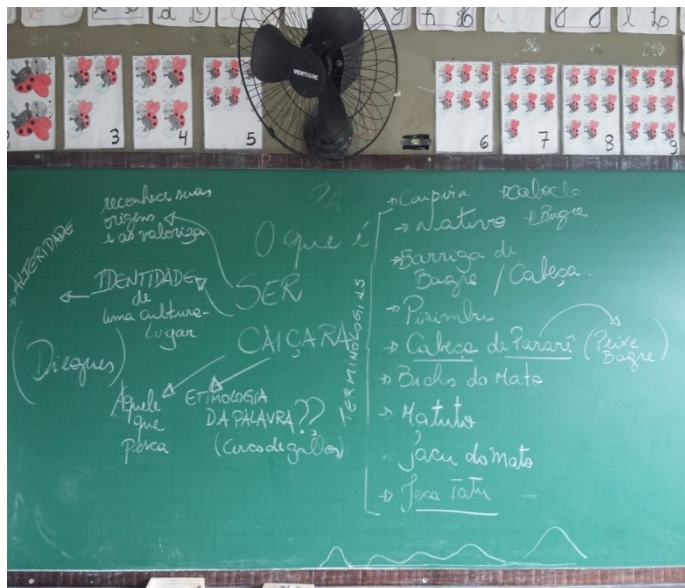 3
4
5
VENTISOL
6
7
8
9
reconhece suas
origens
e as valoriza
→ ALTERIDADE
IDENTIDADE
de
uma cultura-
Lugar
(Diegues)
O que é
SER
CAIÇARA
Aquele
que
pesca
ETIMOLOGIA
DA PALAVRA??
(Cerco de galhos)
TERMINOLOGIAS
→ Caipira → Caboclo
→ Nativo → Bugre
→ Barriga de
Bagre / Cabeça.
→ Cabeça de Parari (Peixe
Bagre)
→ Bicho do Mato
→ Matuto
Jacu do Mato
→ Jeca Tatu